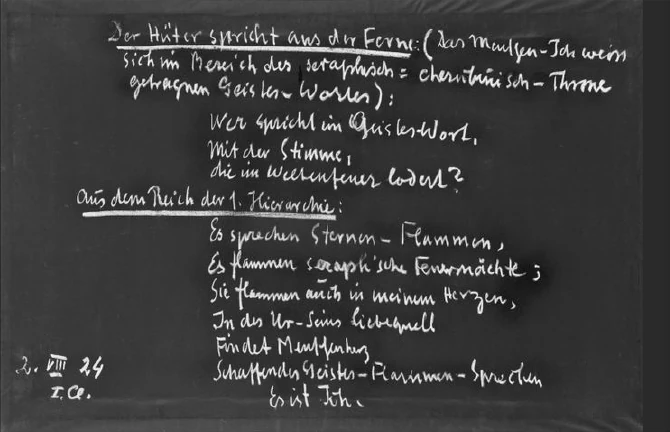 Der Hüter spricht aus der Ferne: (Das Menschen-Ich weiss
sich im Bereich des seraphisch = cherubinisch - Throne
getragnen Geistes-Wortes):
Wer spricht im Geistes-Wort,
Mit der Stimme,
die im Weltenfeuer lodert?
Aus dem Reich der 1. Hierarchie:
Es sprechen Sternen-Flammen,
Es flammen seraph'sche Feuermächte;
Sie flammen auch in meinem Herzen,
In des Ur-Seins Liebequell
Findet Menschenherz
Schaffendes Geistes-Flammen-Sprechen
Es ist Ich.
2. VIII 24
I. Cl.